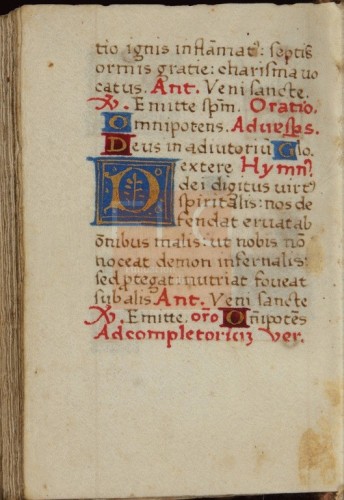 tio ignis inflamat᷒: septis
ormis gratie: charisma uo
catus. Ant. Veni sancte.
℣. Emitte sp̃m. Oratio.
Omnipotens. Aduesp̃s.
Deus in adiutoriũ Glo
extere Hymn᷒
Dei digitus uirt᷒
spiritalis: nos de
fendat eruatab
õnibus malis: ut nobis nõ
noceat demon infernalis:
sed ꝓtegat: nutriat foueat
sub alis Ant. Veni sancte
℣. Emitte. or̃o Om̃ipotẽs
Ad completoriũ ver.